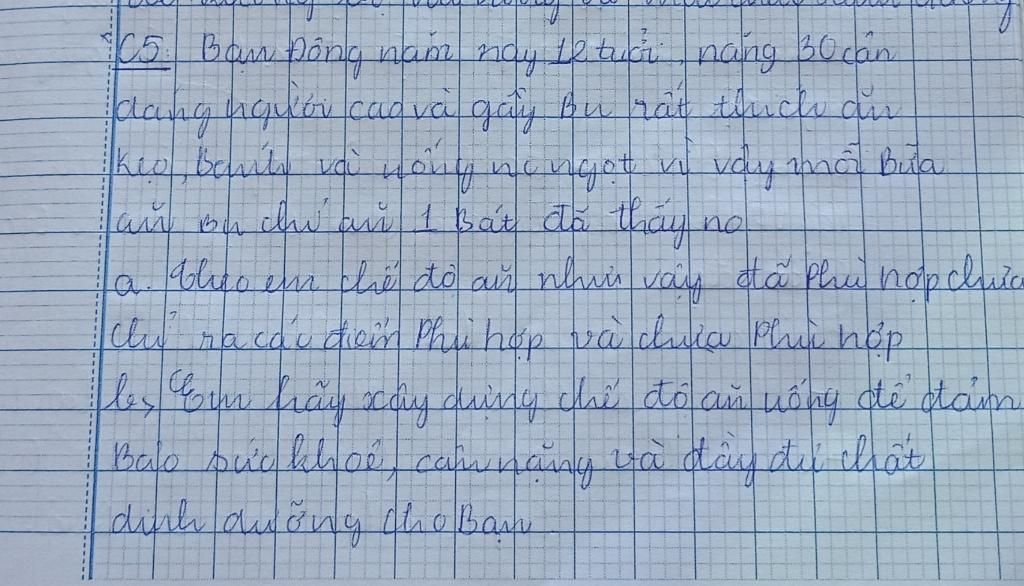 C5: Bạn Đông năm nay 12 tuổi, nặng 30 cân
dáng người cao và gầy Bn rất thích ăn
kẹo, Bánh và uống nc ngọt vì vậy mỗi Bữa
ăn Bn chỉ ăn 1 Bát đã thấy no
a. Theo em chế độ ăn như vậy đã Phù hợp chưa
chỉ ra các điểm Phù hợp và chưa Phù hợp
b, Em hãy xây dựng chế độ ăn uống để đảm
Bảo sức khoẻ, cân nặng và đầy đủ chất
dinh dưỡng cho Bạn